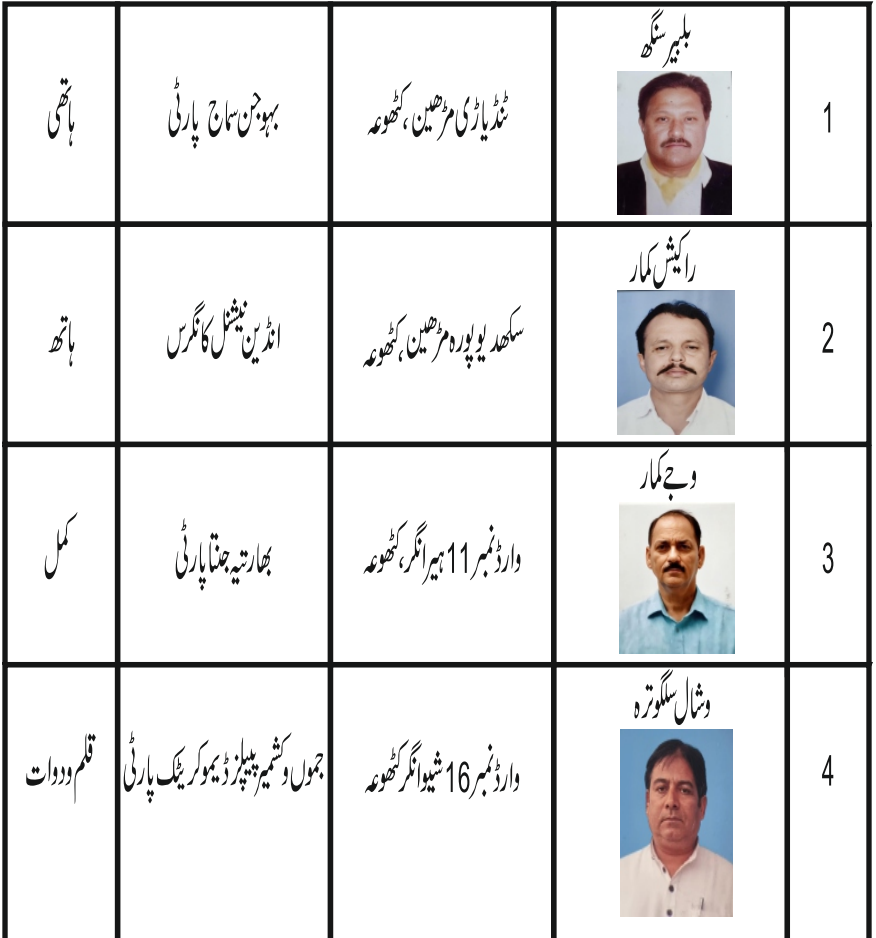 1
بلبیر سنگھ
ٹنڈیاڑی مڑھین ،کٹھوعہ
بہوجن سماج پارٹی
ہاتھی
2
راکیش کمار
سکھدیو پورہ مڑھین ،کٹھوعہ
انڈین نیشنل کانگرس
ہاتھ
3
وجے کمار
وارڈ نمبر 11 ہیرانگر، کٹھوعہ
بھارتیہ جنتا پارٹی
کمل
4
وشال سلگوترہ
وارڈ نمبر 16 شیوانگر کٹھوعہ
جموں و کشمیر پیپلز ڈیموکریٹک پارٹی
قلم ودوات